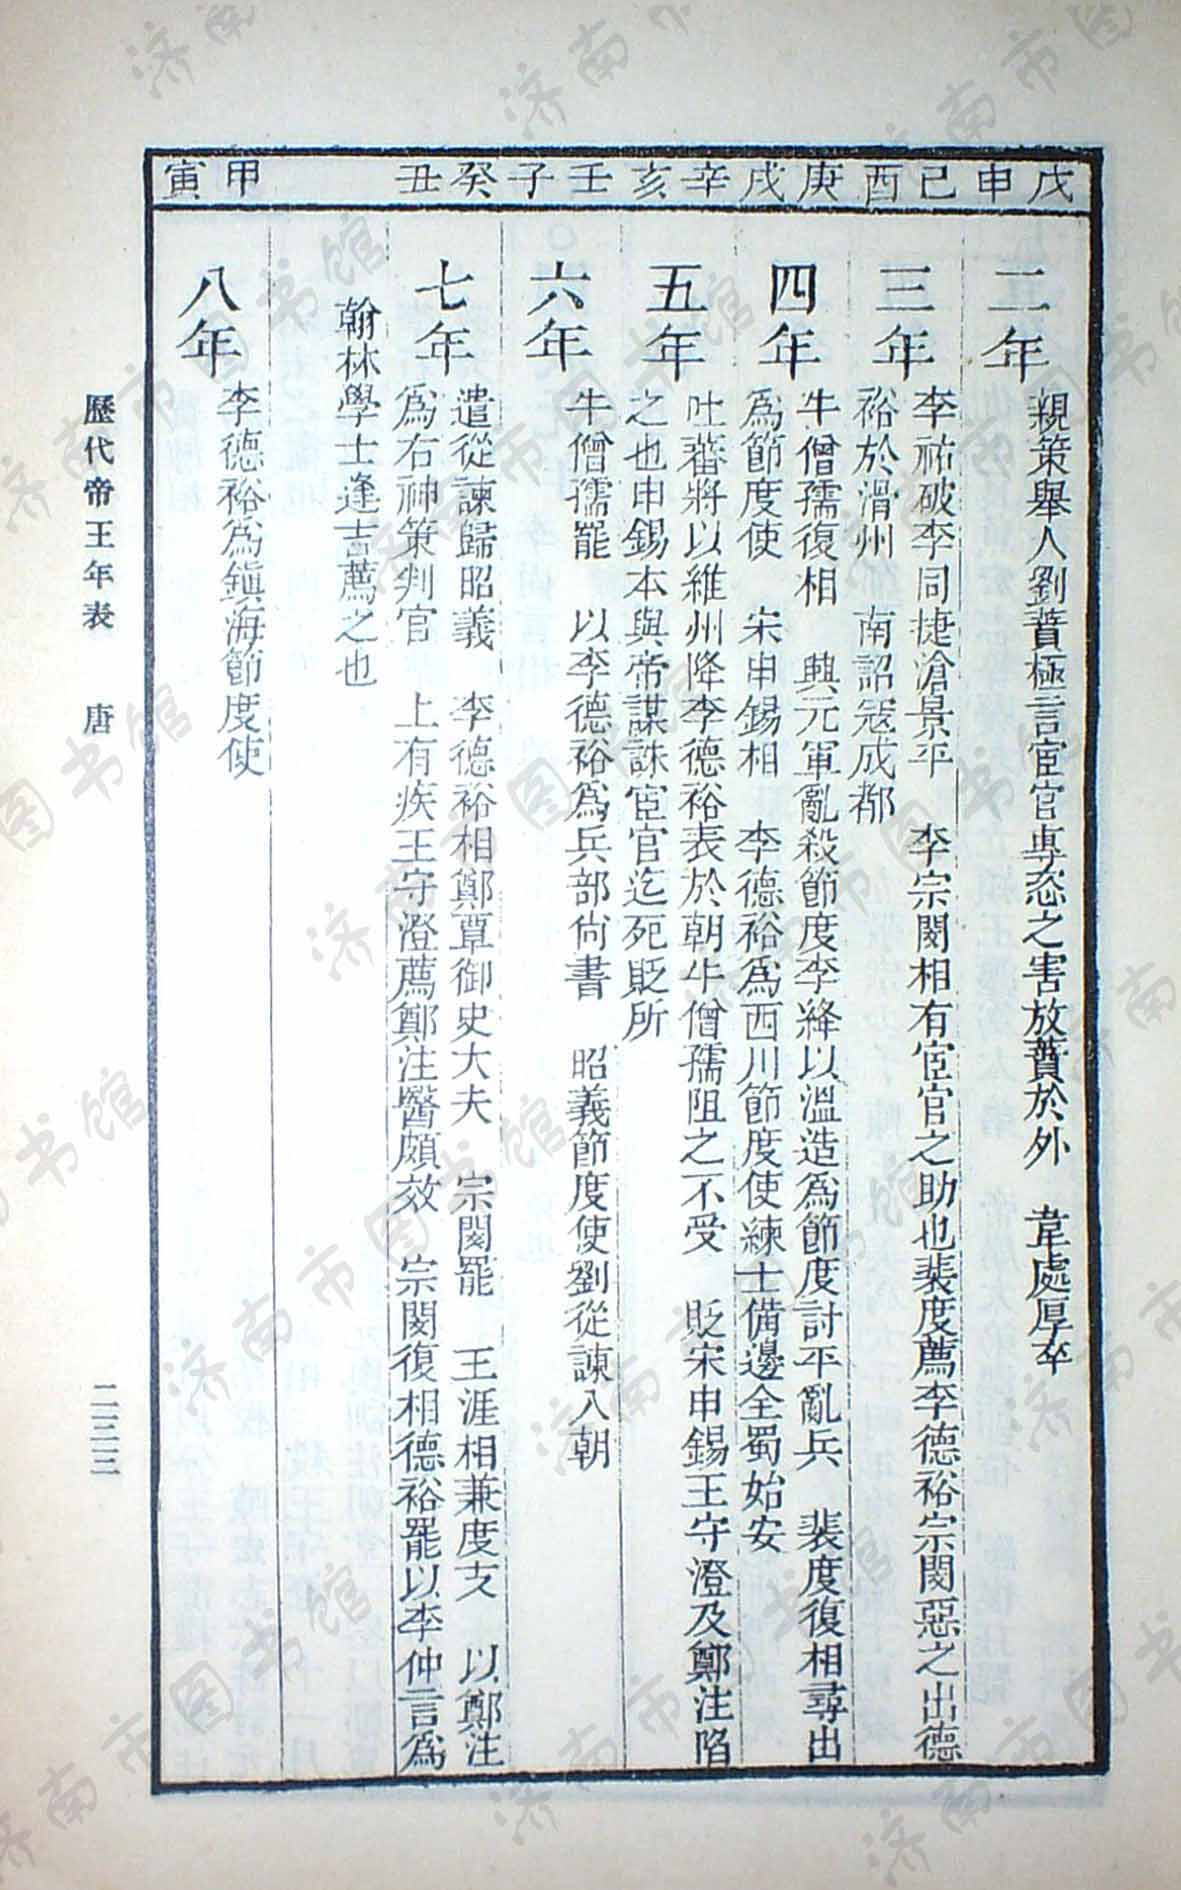 戊申
二年
親策舉人劉蕡極言宦官專恣之害放蕡於外　韋處厚卒
己酉
三年
李祐破李同捷滄景平　李宗閔相有宦官之助也裴度薦李德裕宗閔惡之出德
裕於滑州　南詔寇成都
庚戌
四年
牛僧孺復相　興元軍亂殺節度李絳以溫造爲節度討平亂兵　裴度復相尋出
爲節度使　宋申錫相　李德裕爲西川節度使練士備邊全蜀始安
辛亥
五年
吐蕃將以維州降李德裕表於朝牛僧孺阻之不受　貶宋申錫王守澄及鄭注陷
之也申錫本與帝謀誅宦官迄死貶所
壬子
六年
牛僧孺罷　以李德裕爲兵部尙書　昭義節度使劉從諫入朝
癸丑
七年
遣從諫歸昭義　李德裕相鄭覃御史大夫　宗閔罷　王涯相兼度支　以鄭注
爲右神策判官　上有疾王守澄薦鄭注醫頗效　宗閔復相德裕罷以李仲言爲
翰林學士逢吉薦之也
甲寅
八年
李德裕爲鎭海節度使
歷代帝王年表　唐
二三三
济南市图书馆